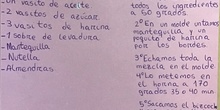 -Un vasito de aceite
-2 vasitos de azúcar
-3 vasitos de harina
-1 sobre de levadura
-Mantequilla
-Nutella
-Almendras
todos los ingredientes
a 60 grados.
2º En un molde untamos
mantequilla y un
poquito de harina
por los bordes.
3ºEchamos toda la
mezcla en el molde
4ºLo metemos en
el horno a 170
grados 35 o 40 min
5ºSacamos el bizcocho